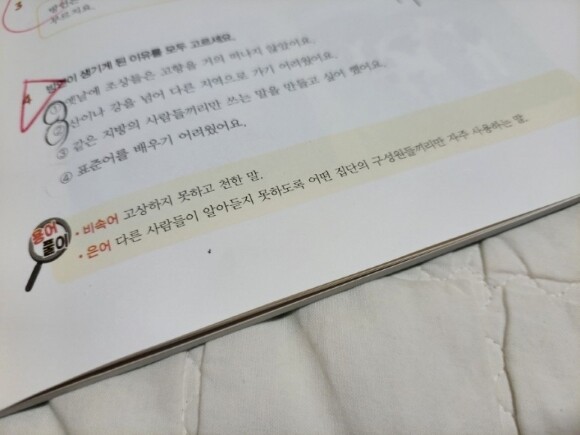 3
4
이 생기게 된 이유를 모두 고르세요.
① 옛날에 조상들은 고향을 거의 떠나지 않았어요.
② 산이나 강을 넘어 다른 지역으로 가기 어려웠어요.
③ 같은 지방의 사람들끼리만 쓰는 말을 만들고 싶어 했어요.
④ 표준어를 배우기 어려웠어요.
용어
풀이
• 비속어 고상하지 못하고 천한 말.
• 은어 다른 사람들이 알아듣지 못하도록 어떤 집단의 구성원들끼리만 자주 사용하는 말.